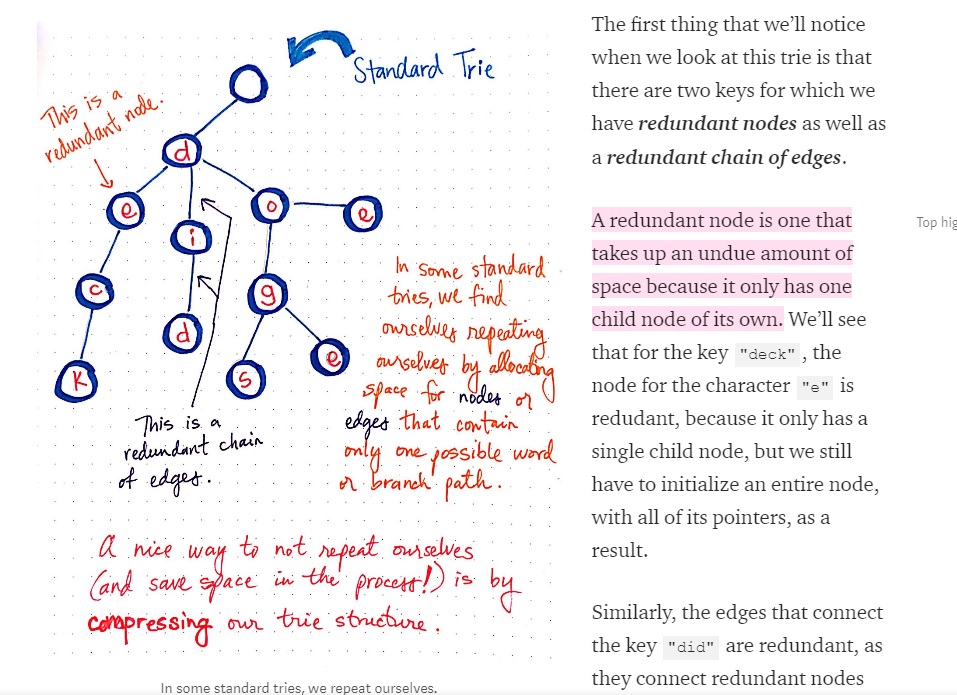 Standard Trie
This is a
redundant node.
d
e
i
o
e
c
g
d
k
s
e
This is a
redundant chain
of edges.
In some standard
tries, we find
ourselves repeating
ourselves by allocating
space for nodes or
edges that contain
only one possible word
or branch path.
A nice way to not repeat ourselves
(and save space in the process!) is by
compressing our trie structure.
In some standard tries, we repeat ourselves.
The first thing that we'll notice
when we look at this trie is that
there are two keys for which we
have redundant nodes as well as
a redundant chain of edges.
A redundant node is one that
takes up an undue amount of
space because it only has one
child node of its own. We'll see
that for the key "deck", the
node for the character "e" is
redudant, because it only has a
single child node, but we still
have to initialize an entire node,
with all of its pointers, as a
result.
Similarly, the edges that connect
the key "did" are redundant, as
they connect redundant nodes
Top hig